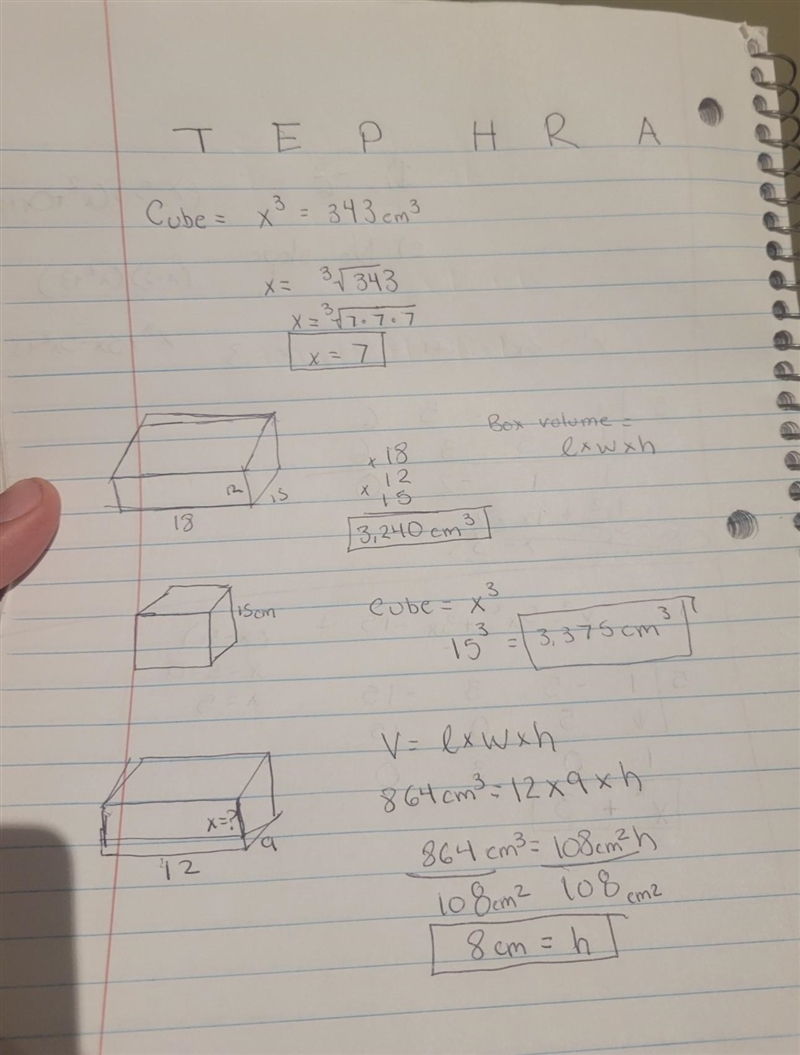 T E P H R A
Cube = x³ = 343 cm³
x = ³√343
x = ³√7·7·7
x = 7
Box volume =
l x w x h
18
12
15
x 18
12
x 15
3,240 cm³
15cm
Cube = x³
15³ = 3,375 cm³
V = l x w x h
864 cm³ = 12 x 9 x h
x=?
9
12
864 cm³ = 108 cm² h
108 cm² 108 cm²
8 cm = h